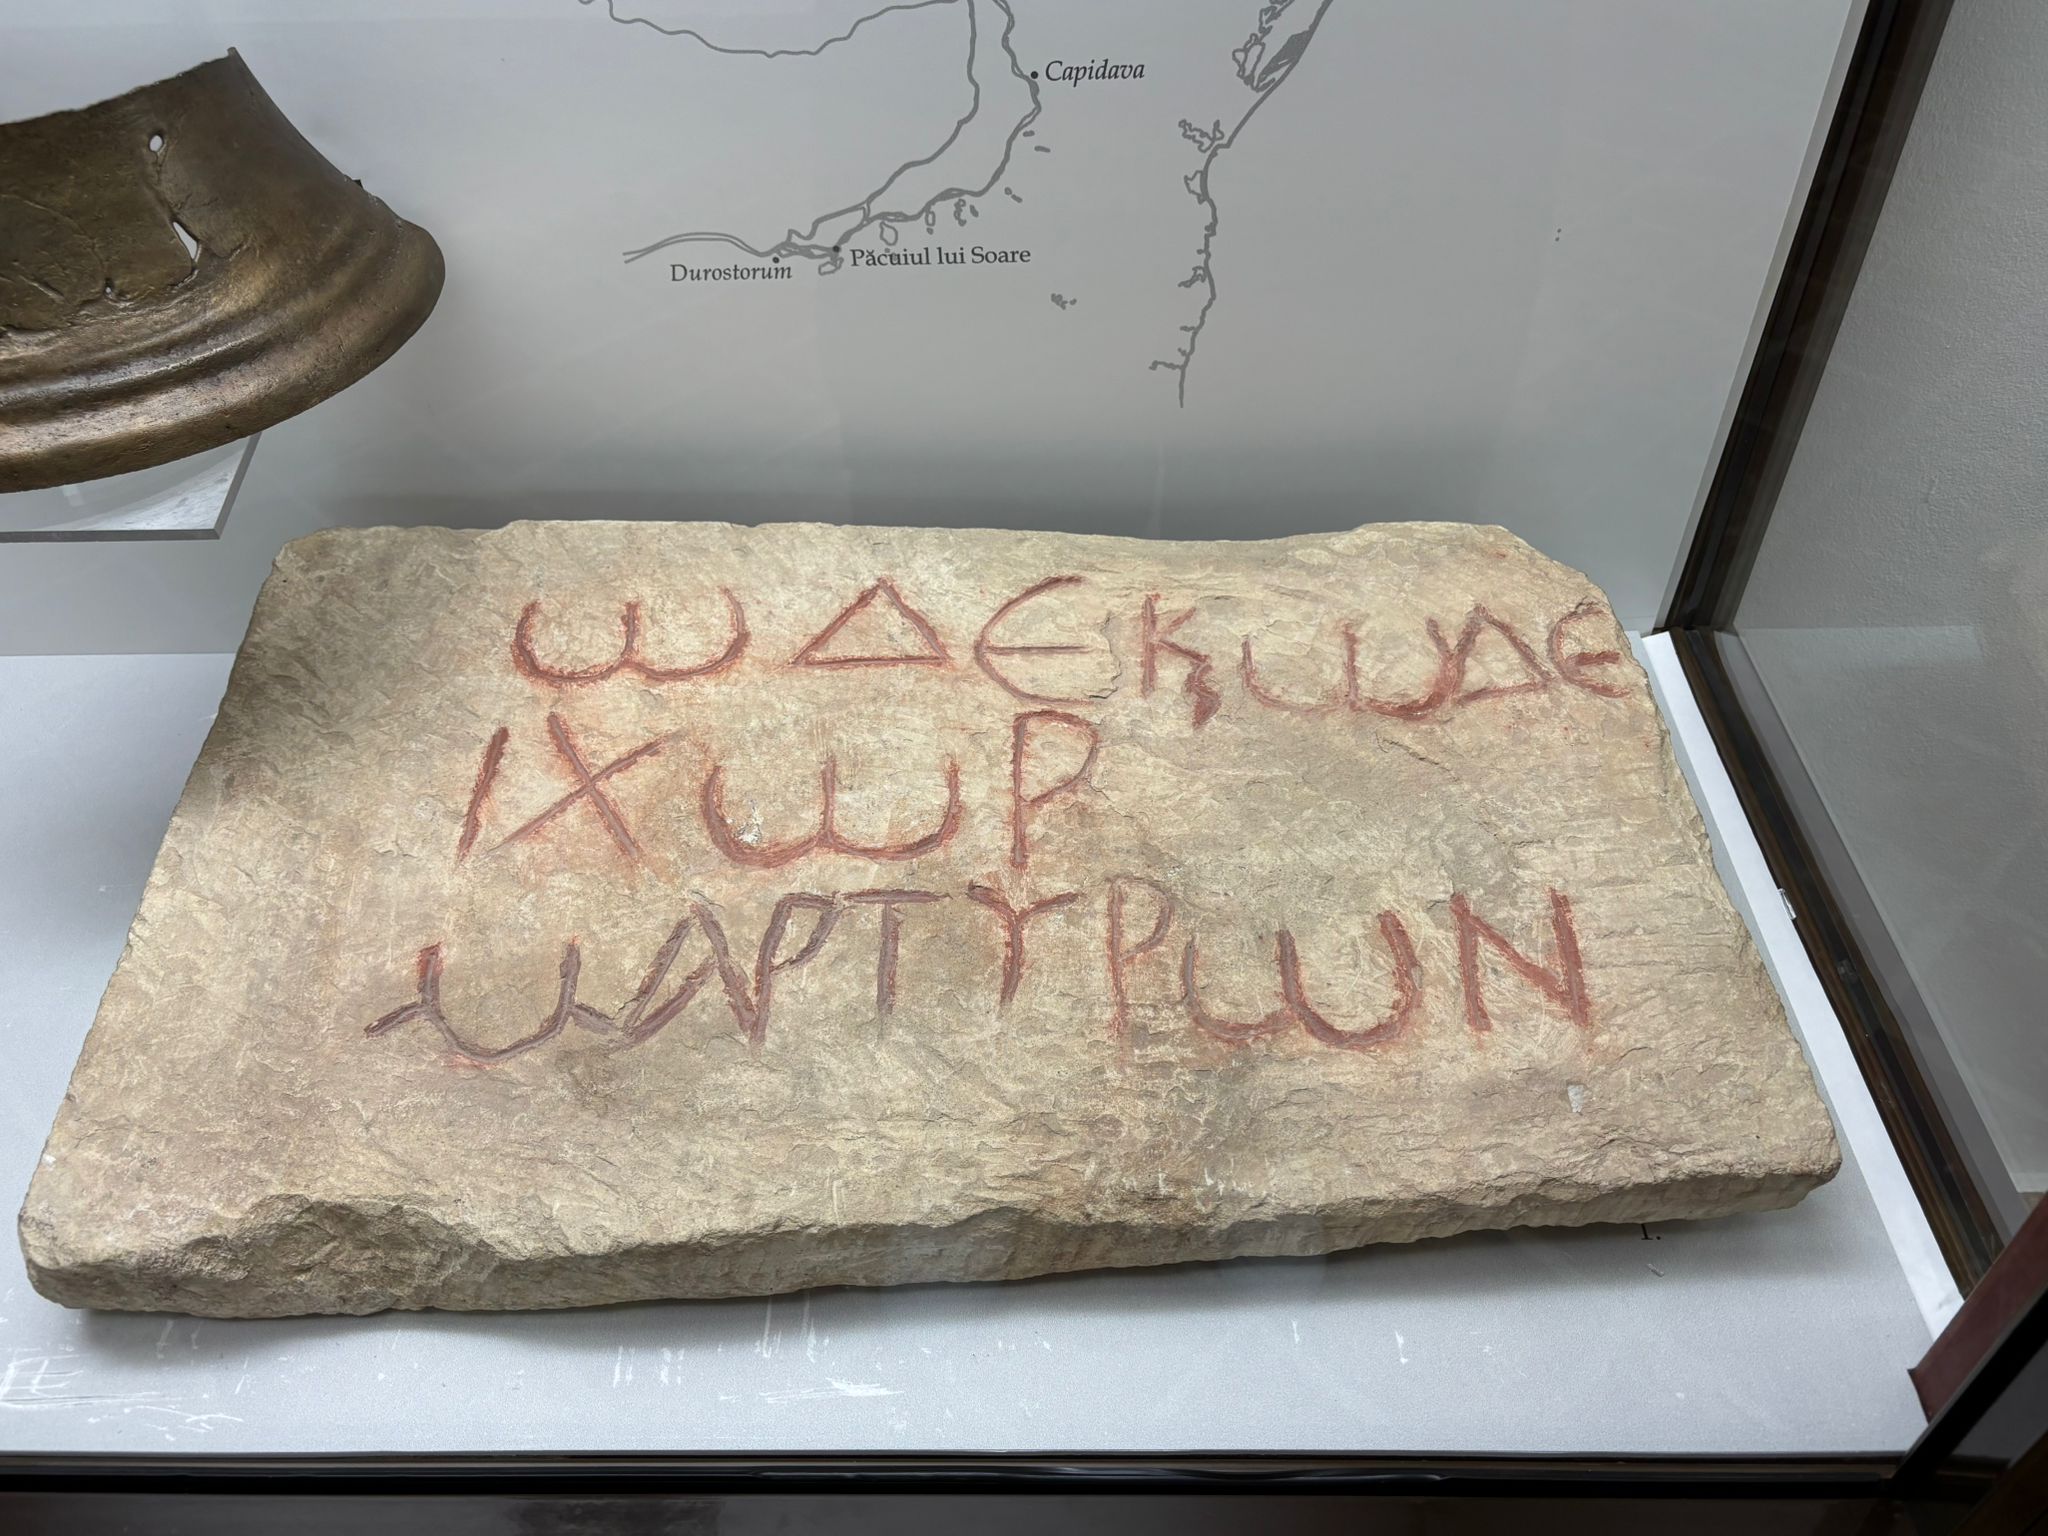 Capidava
Durostorum
Păcuiul lui Soare
ωΔЄΚϛωΔЄ
ΙΧωΡ
ΜΑΡΤΥΡωΝ
1.